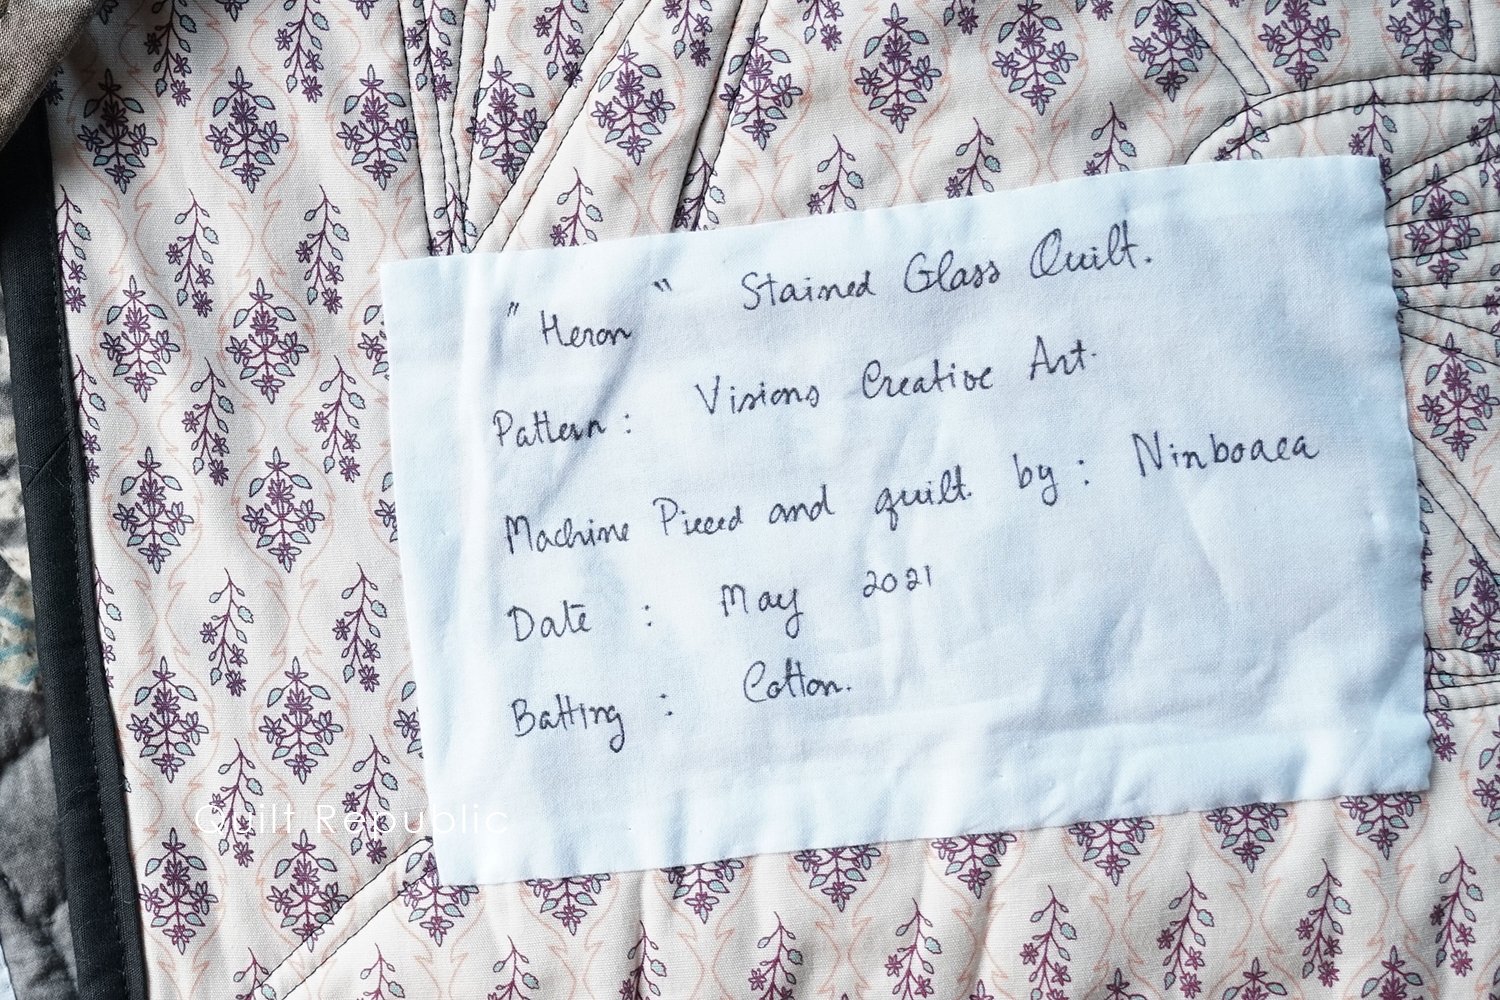 "Heron" Stained Glass Quilt.
Pattern: Visions Creative Art.
Machine Pieced and quilt by: Ninboaea
Date : May 2021
Batting : Cotton.
Quilt Republic